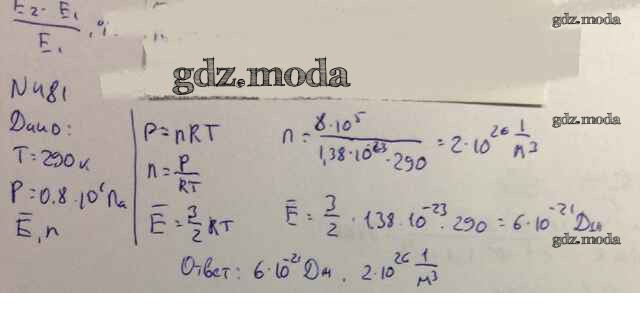 E₂ - E₁ / E₁ , %
gdz.moda
gdz.moda
N481
gdz.moda
Дано:
T = 290 K
P = 0.8 · 10⁶ Па
Ē, n
P = nRT
n = P / RT
Ē = 3/2 RT
n = 8 · 10⁵ / 1,38 · 10⁻²³ · 290 = 2 · 10²⁶ 1/м³
Ē = 3/2 · 1,38 · 10⁻²³ · 290 = 6 · 10⁻²¹ Дж
gdz.moda
Ответ: 6 · 10⁻²¹ Дж, 2 · 10²⁶ 1/м³